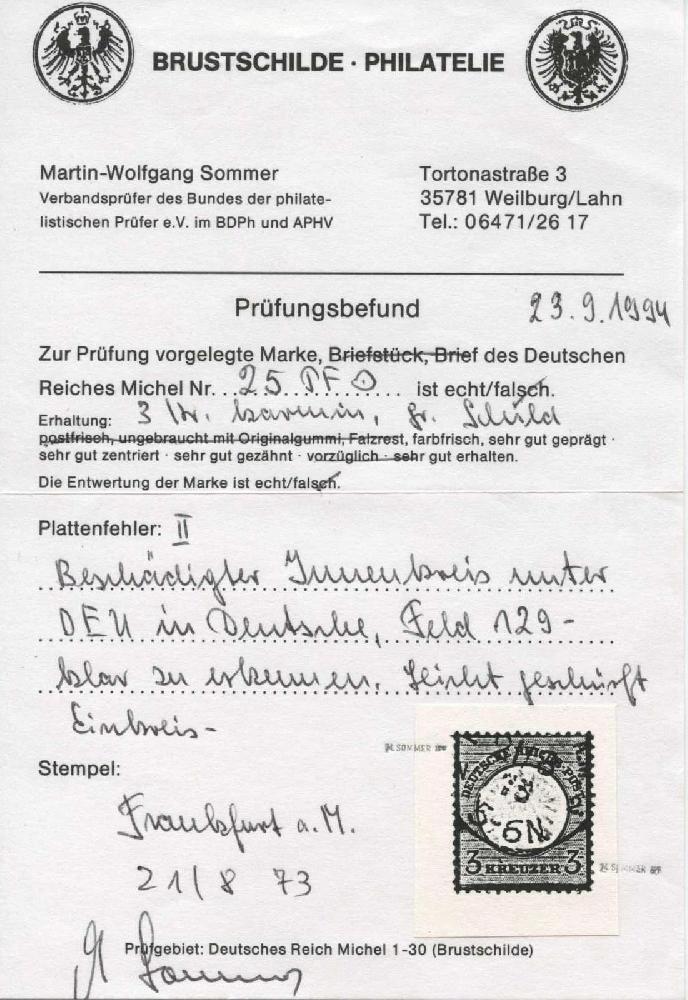 BRUSTSCHILDE · PHILATELIE
Martin-Wolfgang Sommer
Verbandsprüfer des Bundes der philate-
listischen Prüfer e.V. im BDPh und APHV
Tortonastraße 3
35781 Weilburg/Lahn
Tel.: 06471/26 17
Prüfungsbefund
23.9.1994
Zur Prüfung vorgelegte Marke, Briefstück, Brief des Deutschen
Reiches Michel Nr. 25 PF ist echt/falsch.
Erhaltung: 3 Kr. karmin, gr. Schild
postfrisch, ungebraucht mit Originalgummi, Falzrest, farbfrisch, sehr gut geprägt ·
sehr gut zentriert · sehr gut gezähnt · vorzüglich · sehr gut erhalten.
Die Entwertung der Marke ist echt/falsch.
Plattenfehler: II
Beschädigter Innenkreis unter
DEU in Deutsche, Feld 129-
klar zu erkennen. Leicht geschürft
Einkreis-
Stempel:
Frankfurt a.M.
21/8 73
SOMMER BPP
DEUTSCHE REICHS-POST
6N
3 KREUZER 3
SOMMER BPP
Prüfgebiet: Deutsches Reich Michel 1-30 (Brustschilde)
M Sommer